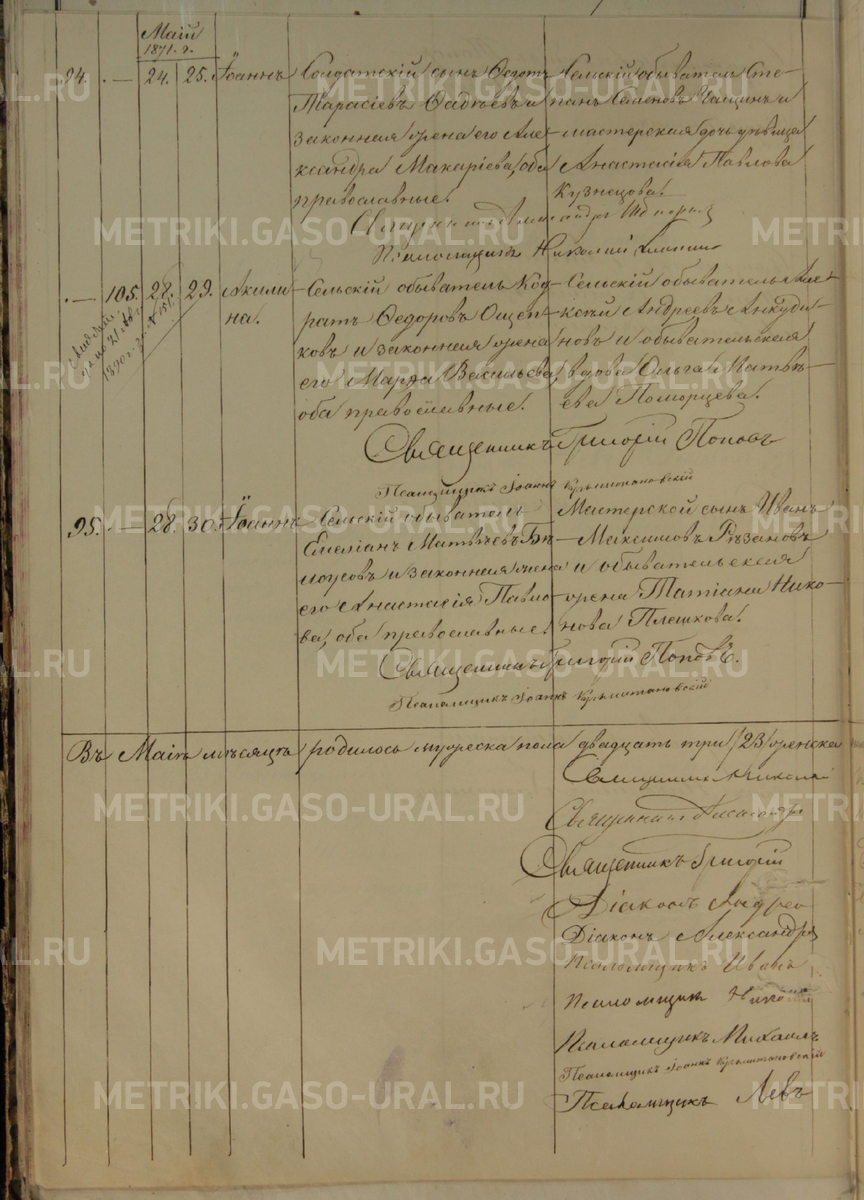 Маій
1871. г.
94. — 24. 25. Іоаннъ
Солдатскій сынъ Ѳедотъ
Тарасіевъ
законная жена его Але-
ксандра Макаріева, оба
православные.
Сельскій обыватель Сте-
панъ Семеновъ и
мастерская дочь дѣвица
Анастасія Павлова
Кузнецова.
Псаломщикъ Николай
— 105. 28. 29. Акили-
на.
Сельскій обыватель Код-
ратъ Ѳедоровъ Ощеп-
ковъ и законная жена
его Марѳа Васильева,
оба православные.
Сельскій обыватель Але-
ксѣй Андреевъ Анкуди-
новъ и обывательская
вдова Ольга Матвѣ-
ева Поморцева.
Священникъ Григорій Поповъ
Псаломщикъ Іоаннъ
95. — 28. 30. Іоаннъ
Сельскій обыватель
Емеліанъ Матвѣевъ Бѣ-
лоусовъ и законная жена
его Анастасія Павло-
ва, оба православные.
Мастерской сынъ Иванъ
Максимовъ Рѣзановъ
и обывательская
жена Татіана Нико-
нова Плешкова.
Священникъ Григорій Поповъ.
Псаломщикъ Іоаннъ
Въ Маіѣ мѣсяцѣ родилось мужеска пола двадцать три /23/ женска
Священникъ Николай
Священникъ Александръ
Священникъ Григорій
Діаконъ Андрей
Діаконъ Александръ
Псаломщикъ Иванъ
Псаломщикъ Николай
Псаломщикъ Михаилъ
Псаломщикъ Іоаннъ
Псаломщикъ Левъ
METRIKI.GASO-URAL.RU